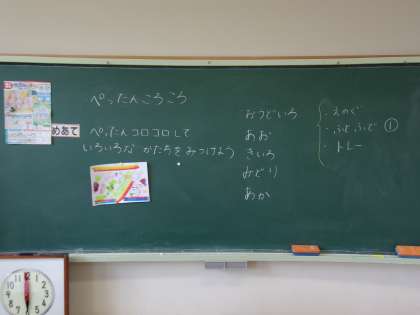 ぺったんころころ
めあて
ぺったんコロコロして
いろいろな かたちを みつけよう
おうどいろ
あお
きいろ
みどり
あか
・えのぐ
・ふでふで ①
・トレー